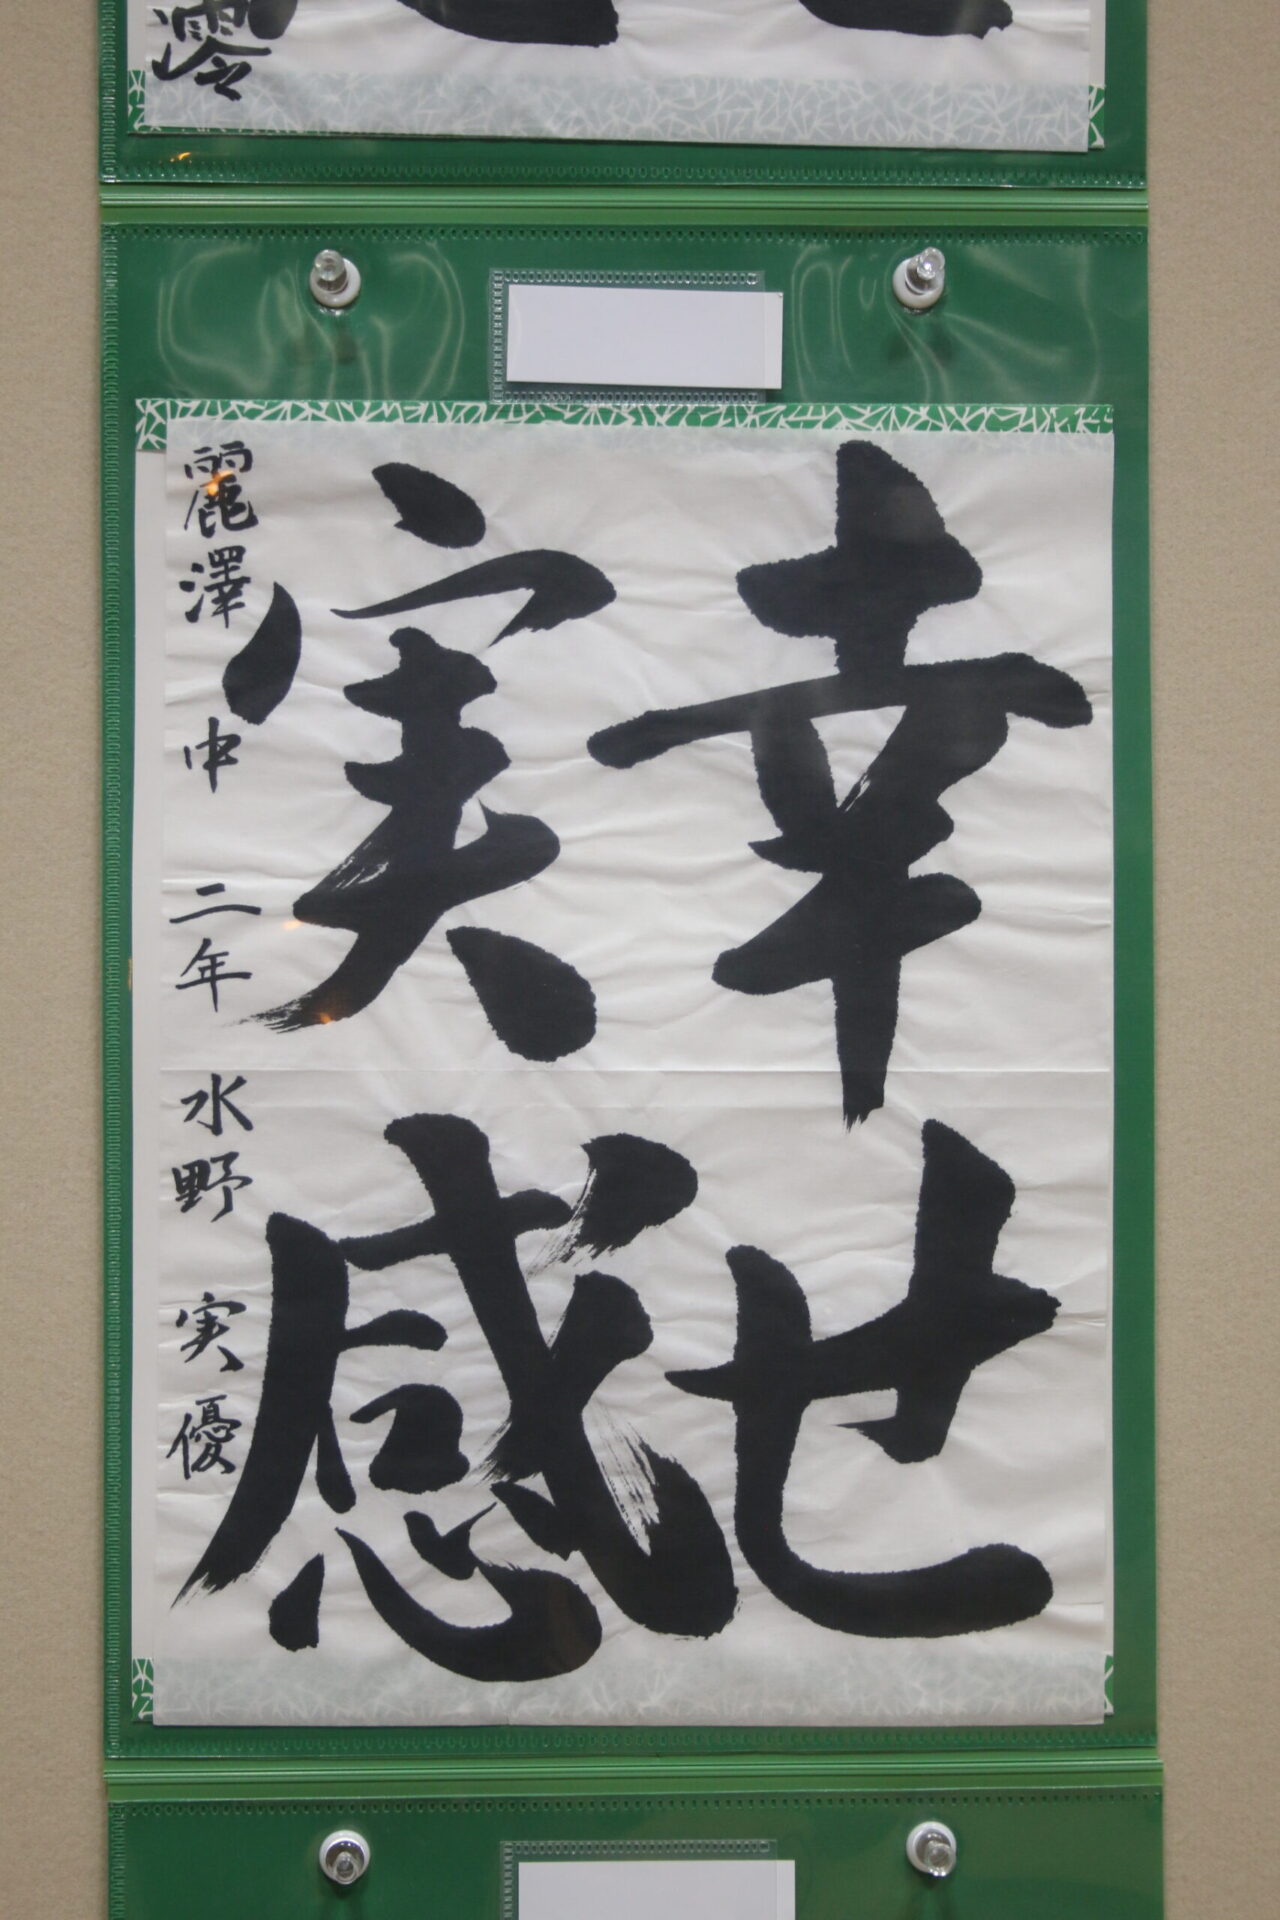 幸せ
実感
麗澤中 二年 水野 実優
澪